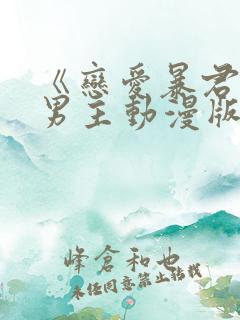 《戀愛暴君
男主動漫版
峰倉和也
未任同意禁止轉載